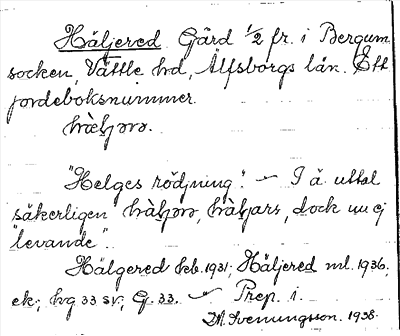 Häljered Gård 1/2 fr. i Bergum
socken, Vättle hd, Älfsborgs län. Ett
jordeboksnummer.
"Helges rödjning". – I ä. uttal
säkerligen dock nu ej
"levande".
Hälgered keb. 1931; Häljered ml. 1936,
ek., hg 33 sv; G. 33. – Prep. i.
M. Svenungsson. 1938.